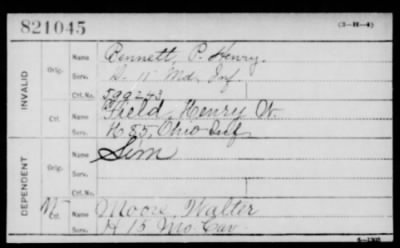 821045
(3-H-4)
INVALID
Orig.
Name Bennett, P. Henry.
Serv. D. 11" Md. Inf.
Ctf. No. 599243
Ctf.
Name Field, Henry W.
Serv. H 85, Ohio Inf
DEPENDENT
Orig.
Name Sim
Serv.
Ctf. No.
Ctf.
Name Moore, Walter
Serv. H 15 Mo. Cav.